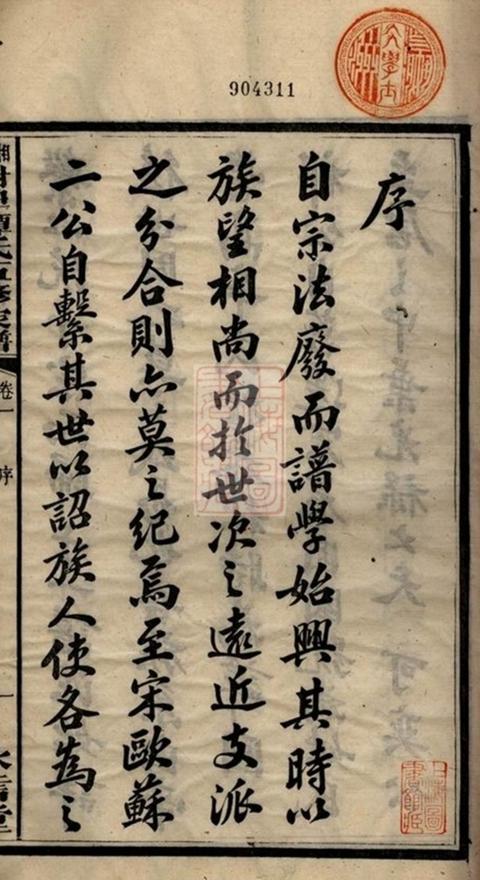 904311
序
自宗法廢而譜學始興其時以
族望相尚而於世次之遠近支派
之分合則亦莫之紀焉至宋歐蘇
二公自繫其世以詔族人使各為之
卷一
序